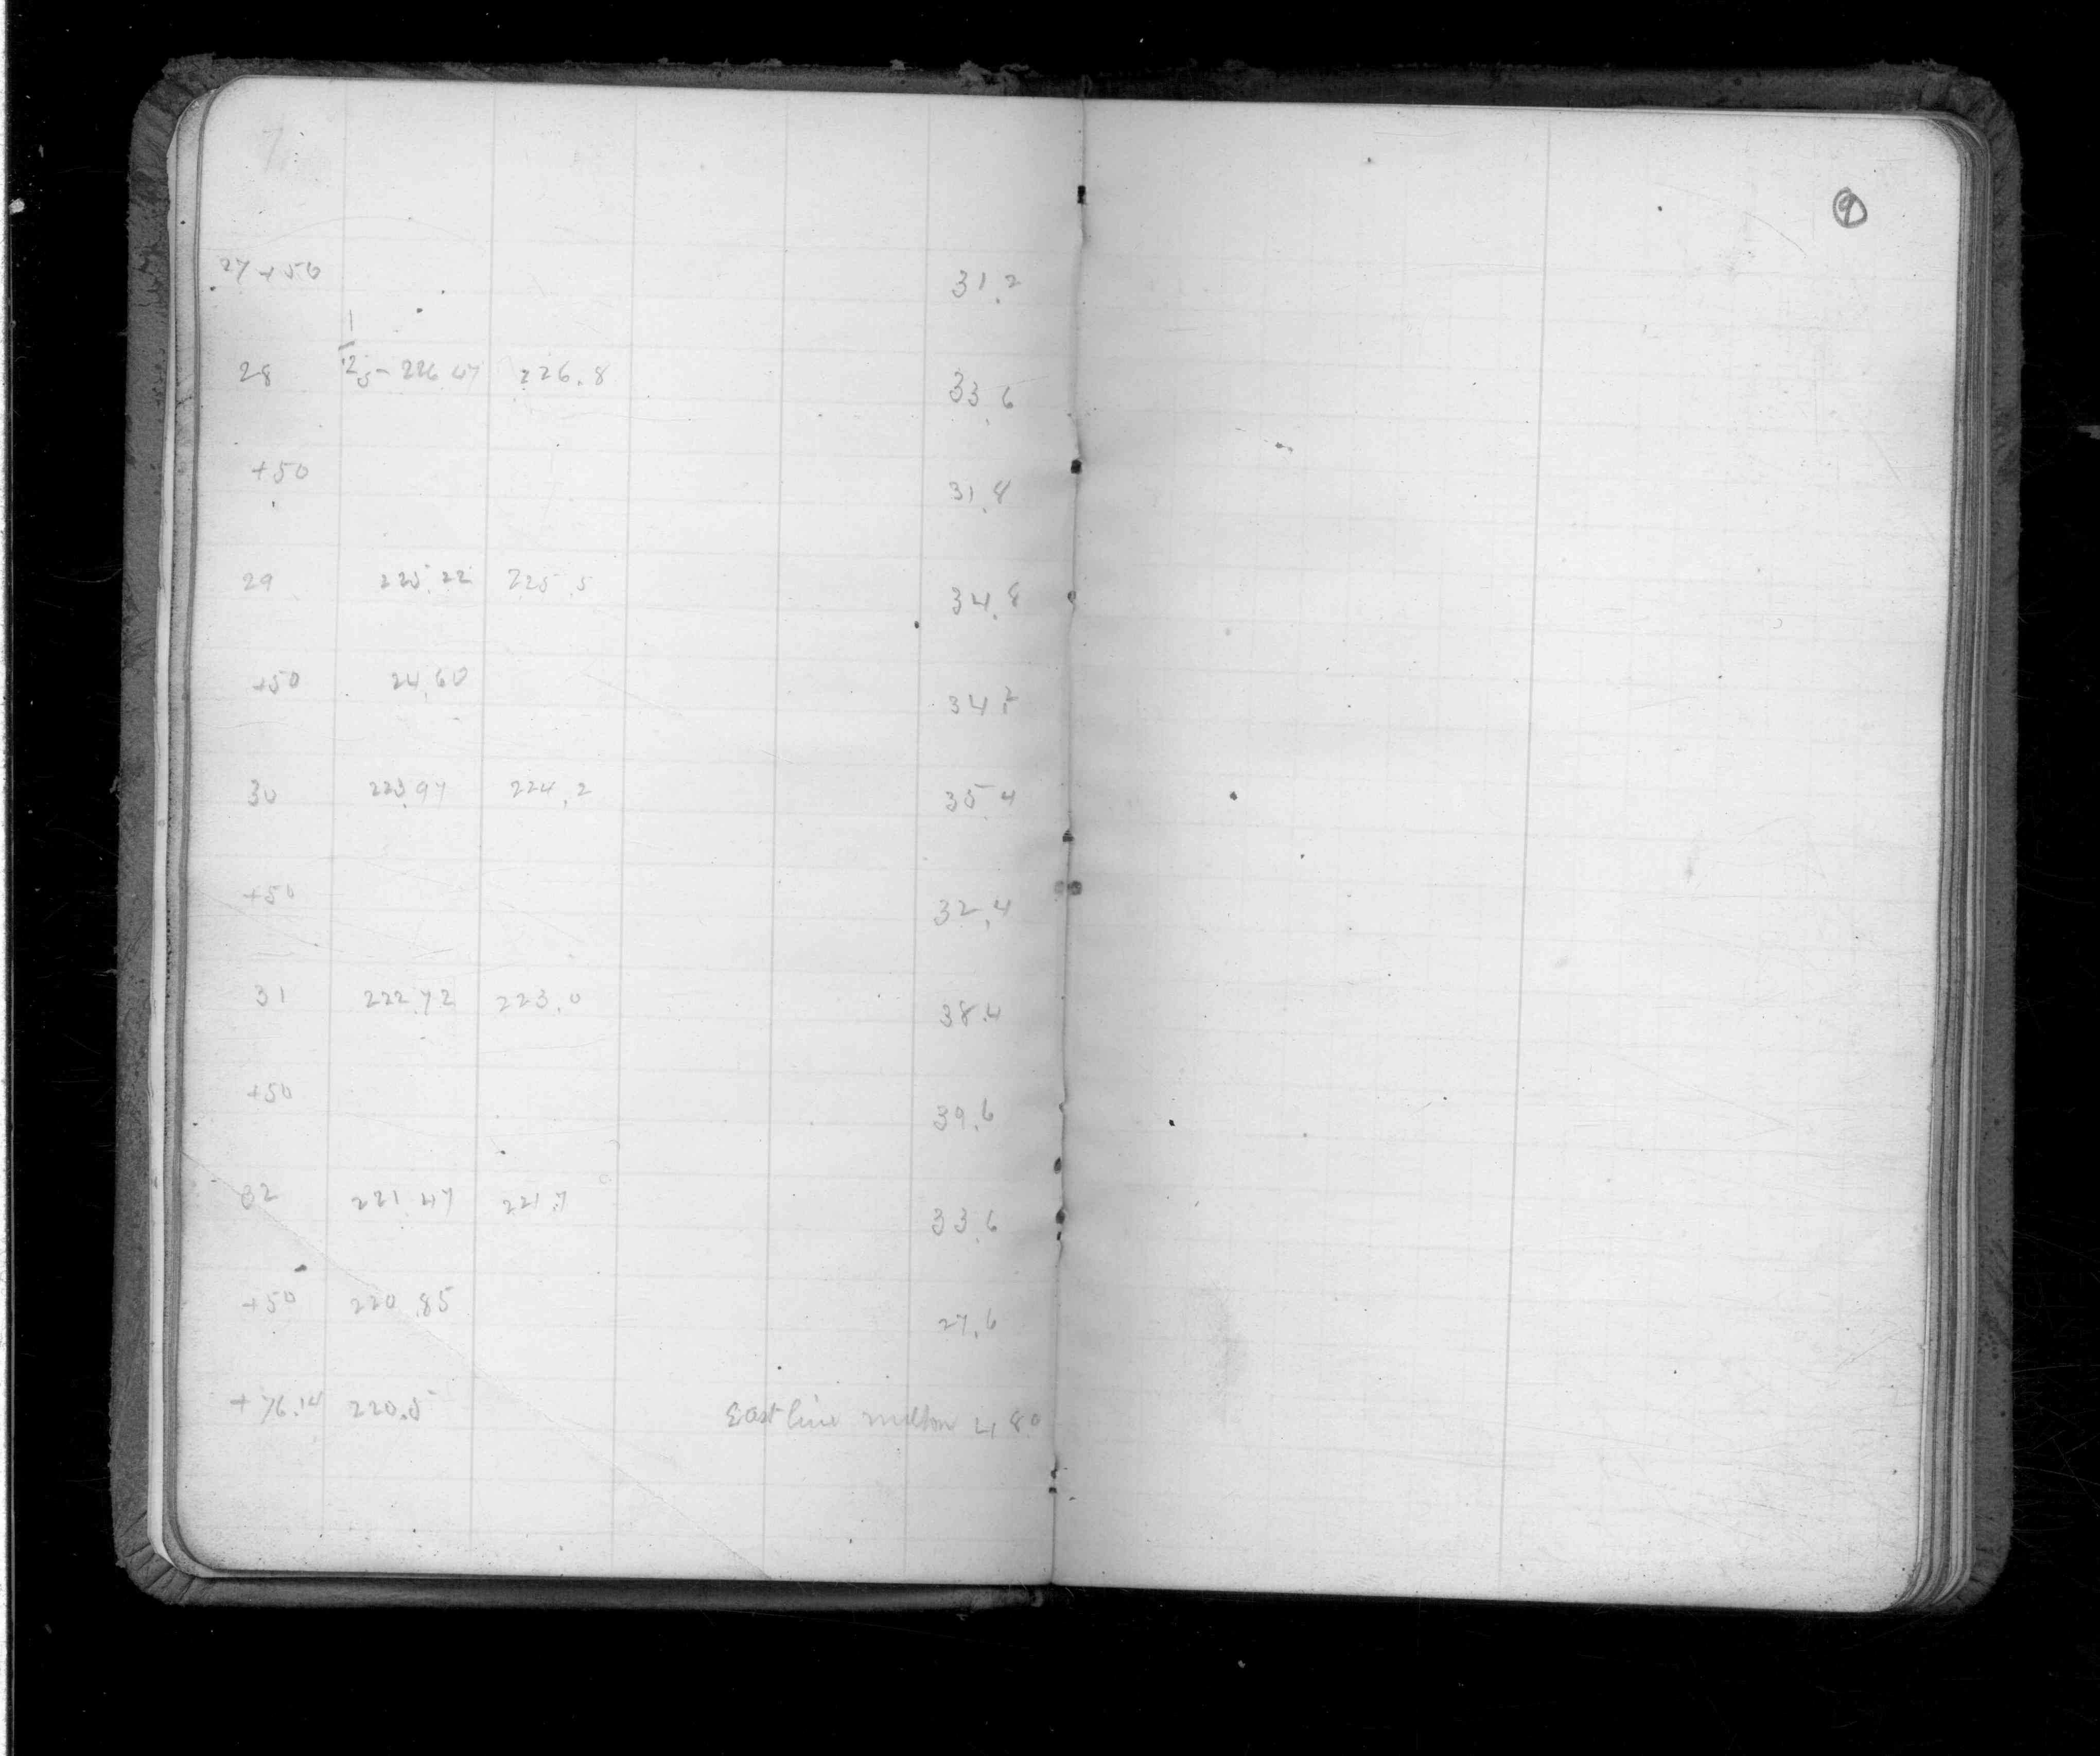 9
27+50 31.2
1
28 226.47 226.8 33.6
+50 31.8
29 225.22 225.5 34.8
+50 24.60 34.2
30 223.97 224.2 35.4
+50 32.4
31 222.72 223.0 38.4
+50 39.6
32 221.47 221.7 33.6
+50 220.85 27.6
+76.14 220.5 East line milton 480